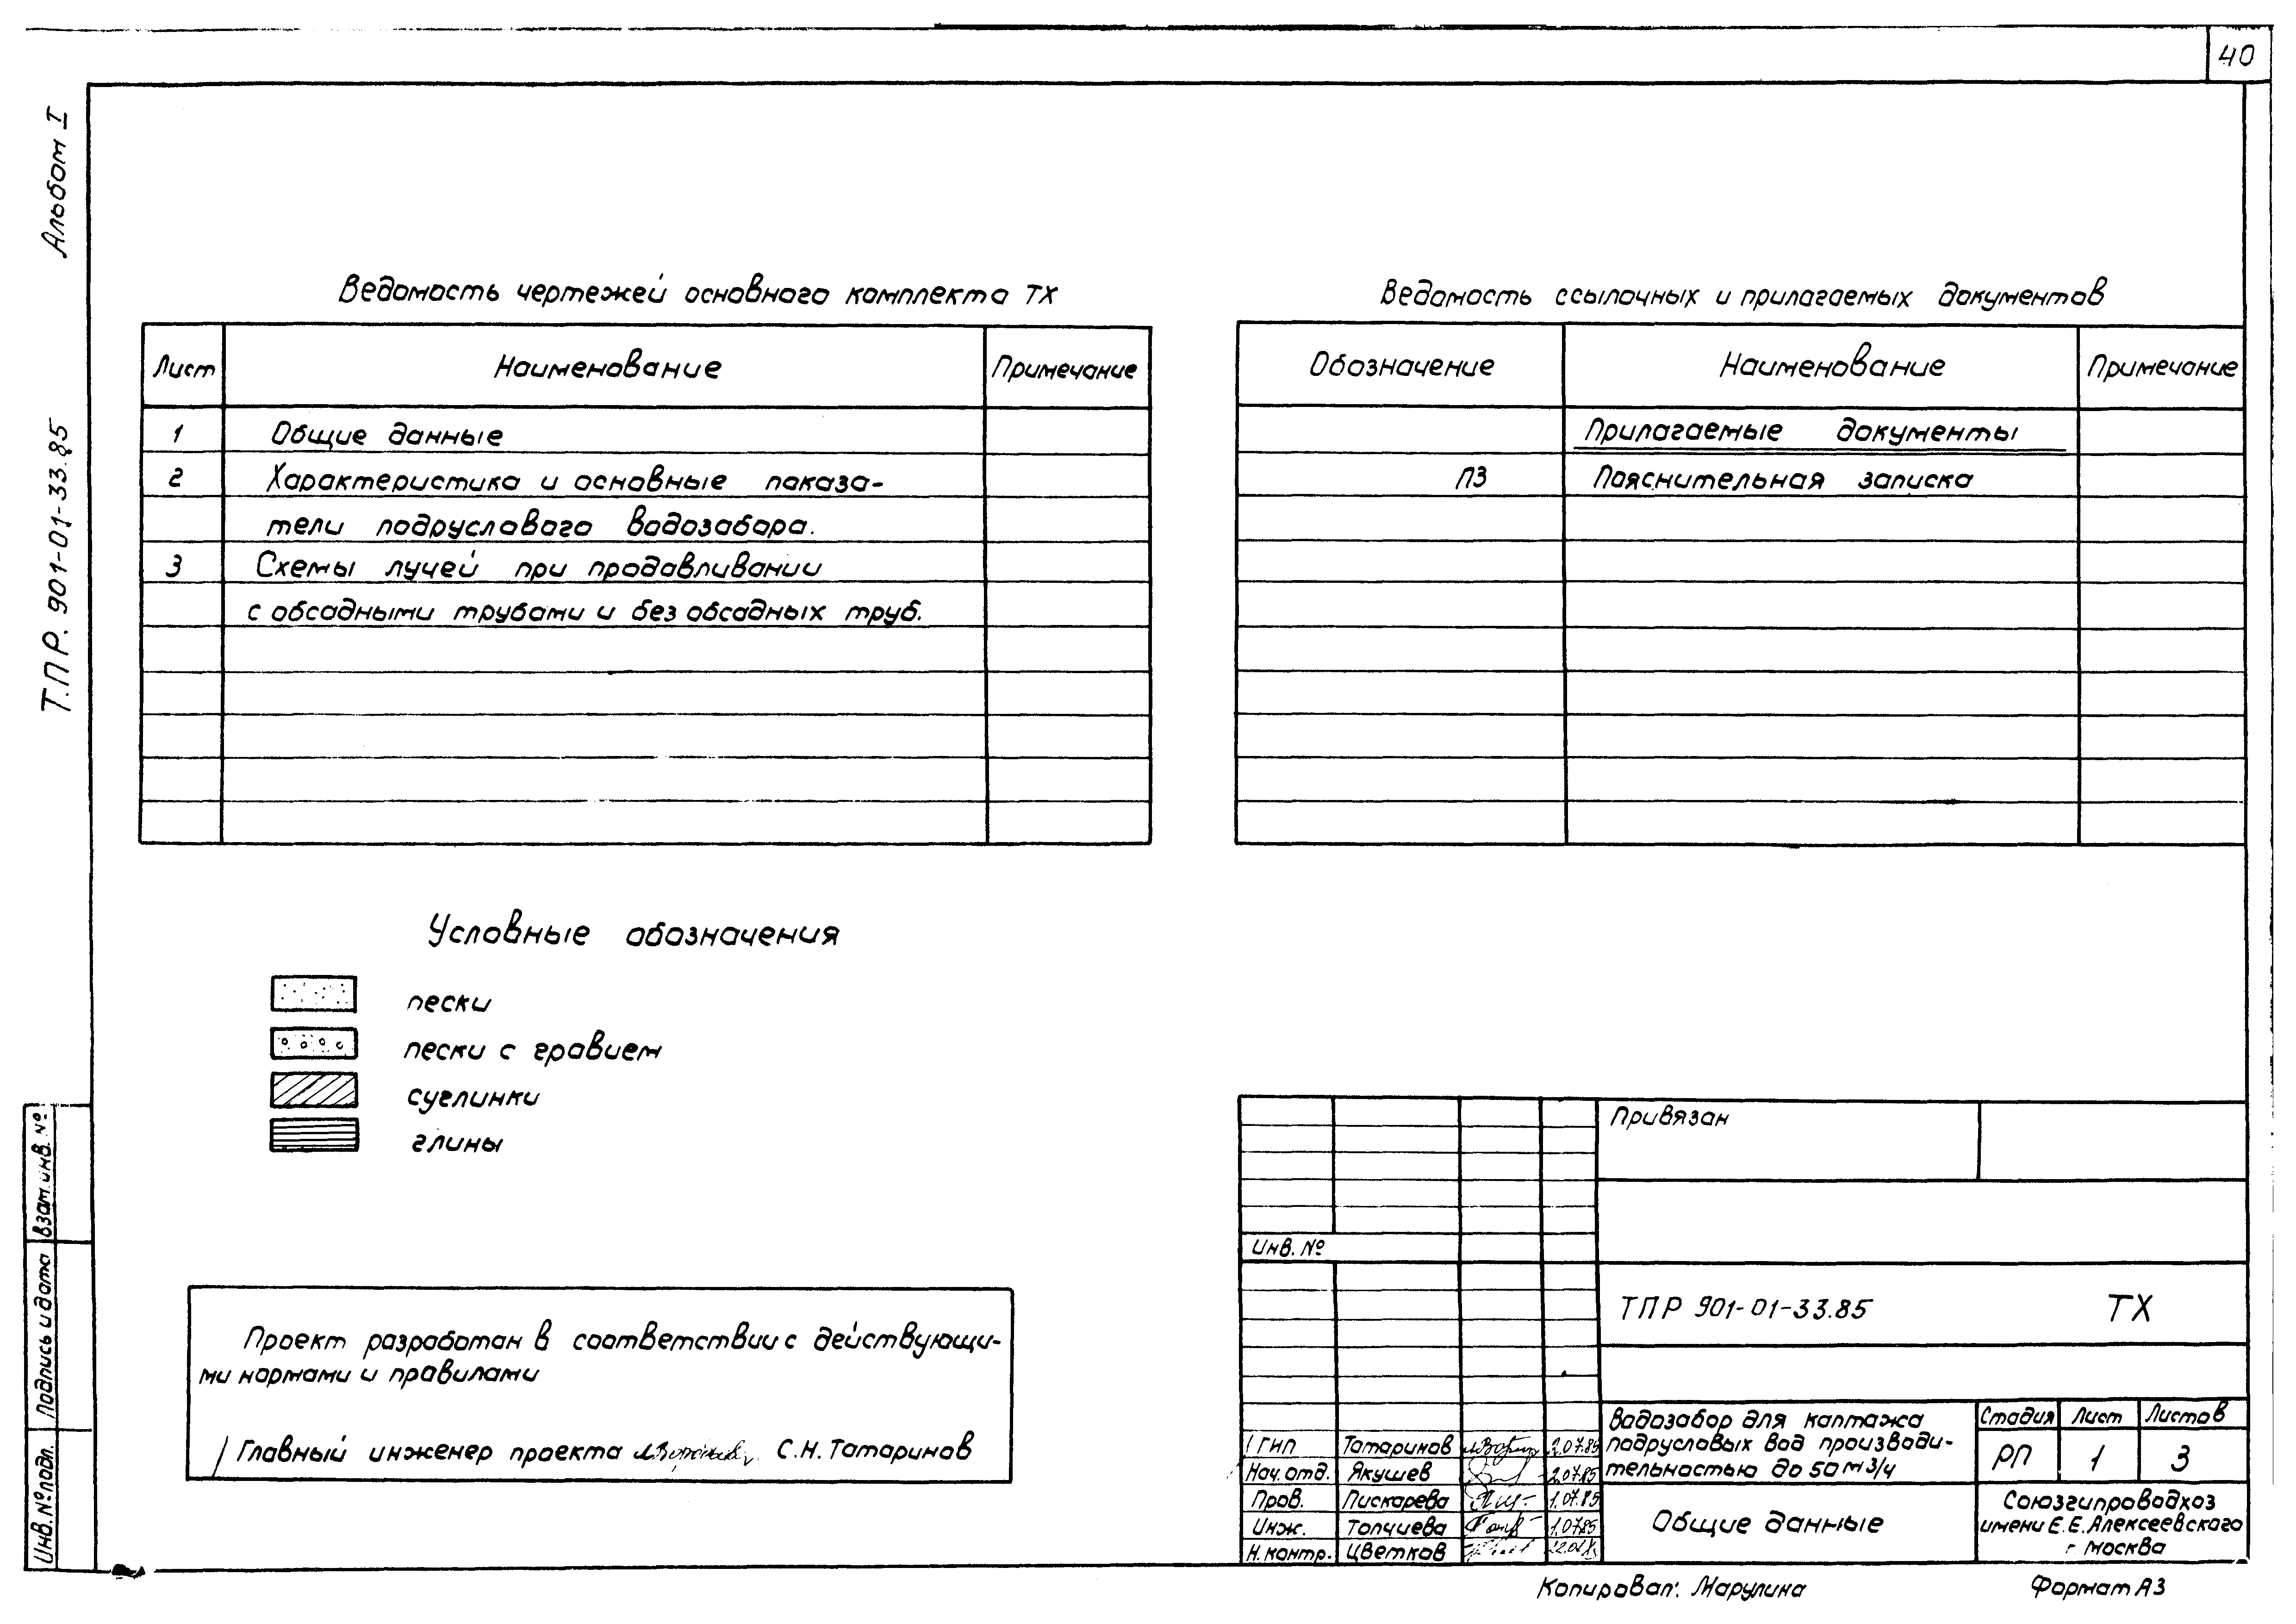 40
Альбом I
Т.П Р. 901-01-33.85
Ведомость чертежей основного комплекта ТХ
Лист Наименование Примечание
1 Общие данные
2 Характеристика и основные показа-
тели подруслового водозабора.
3 Схемы лучей при продавливании
с обсадными трубами и без обсадных труб.
Ведомость ссылочных и прилагаемых документов
Обозначение Наименование Примечание
Прилагаемые документы
ПЗ Пояснительная записка
Условные обозначения
пески
пески с гравием
суглинки
глины
Проект разработан в соответствии с действующи-
ми нормами и правилами
Главный инженер проекта С.Н. Татаринов
Взам. инв. №
Подпись и дата
Инв. № подл.
Привязан
Инв. №
ТПР 901-01-33.85 ТХ
ГИП Татаринов 2.07.85
Нач. отд. Якушев 2.07.85
Пров. Пискарева 1.07.85
Инж. Топчиева 1.07.85
Н. контр. Цветков
Водозабор для каптажа
подрусловых вод производи-
тельностью до 50 м3/ч
Стадия Лист Листов
РП 1 3
Общие данные
Союзгипроводхоз
имени Е.Е. Алексеевского
г Москва
Копировал: Марулина
Формат А3